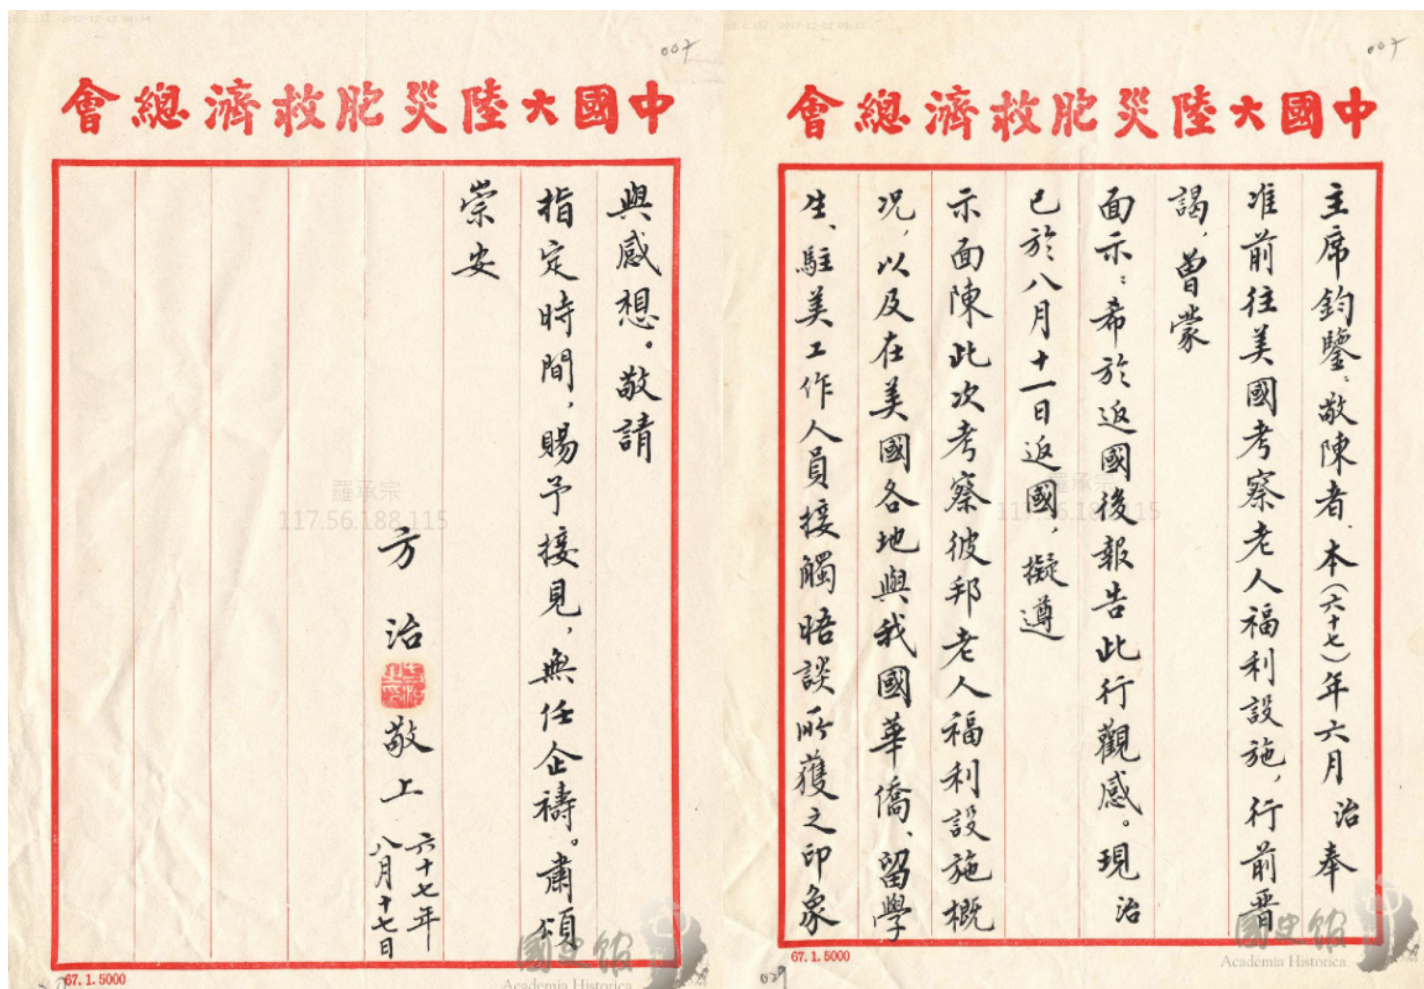 007
中國大陸災胞救濟總會
主席鈞鑒：敬陳者、本（六十七）年六月治奉
准前往美國考察老人福利設施，行前晋
謁，曾蒙
面示：希於返國後報告此行觀感。現治
已於八月十一日返國，擬遵
示面陳此次考察彼邦老人福利設施概
況，以及在美國各地與我國華僑、留學
生、駐美工作人員接觸晤談所獲之印象
67.1.5000
國史館
Academia Historica
羅承宗
117.56.188.115
007
中國大陸災胞救濟總會
與感想。敬請
指定時間，賜予接見，無任企禱。肅頌
崇安
方治敬上
六十七年
八月十七日
67.1.5000
國史館
Academia Historica
羅承宗
117.56.188.115